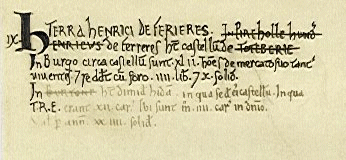 IX. TERRA HENRICI DE FERIERES. In Pireholle hund'
HENRICVS de ferreres ht' castellu' de TOTEBERIE.
In Burgo circa castellu' sunt .xl.ii. ho'es de mercato suo tant'
uiuentes. 7 redd't cu' foro .iiii. lib. 7 x. solid.
In ht' dimid hida. in qua sedet ei' castellu'. In qua
T.R.E. erant .xii. car'. Ibi sunt m' .iiii. car' in d'nio.
Val' p' ann' xx.iiii. solid'.